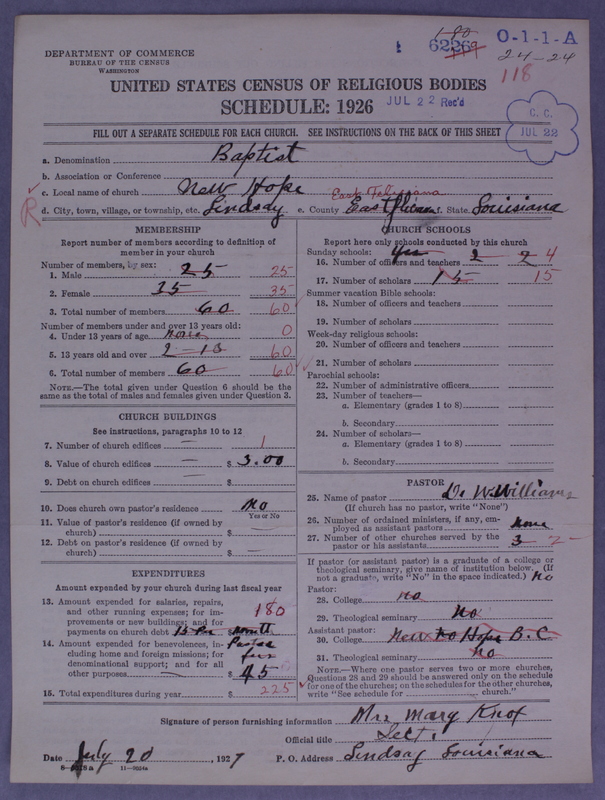 180
62269 O-1-1-A
24-24
118
DEPARTMENT OF COMMERCE
BUREAU OF THE CENSUS
WASHINGTON
UNITED STATES CENSUS OF RELIGIOUS BODIES
SCHEDULE: 1926 JUL 22 Rec'd
C. C.
JUL 22
FILL OUT A SEPARATE SCHEDULE FOR EACH CHURCH. SEE INSTRUCTIONS ON THE BACK OF THIS SHEET
a. Denomination Baptist
b. Association or Conference
c. Local name of church New Hope
East Feliciana
R
d. City, town, village, or township, etc. Lindsay e. County East f. State Louisiana
MEMBERSHIP
Report number of members according to definition of
member in your church
Number of members, by sex:
1. Male 25 25
2. Female 35 35
3. Total number of members 60 60
Number of members under and over 13 years old:
4. Under 13 years of age none 0
5. 13 years old and over 2-13 60
6. Total number of members 60 60
NOTE.—The total given under Question 6 should be the
same as the total of males and females given under Question 3.
CHURCH BUILDINGS
See instructions, paragraphs 10 to 12
7. Number of church edifices 1
8. Value of church edifices $ 3.00
9. Debt on church edifices $
10. Does church own pastor's residence No
Yes or No
11. Value of pastor's residence (if owned by
church) $
12. Debt on pastor's residence (if owned by
church) $
EXPENDITURES
Amount expended by your church during last fiscal year
13. Amount expended for salaries, repairs,
and other running expenses; for im-
provements or new buildings; and for
payments on church debt 15 Per month 180
14. Amount expended for benevolences, in-
cluding home and foreign missions; for
denominational support; and for all
other purposes $ 45
15. Total expenditures during year $ 225
CHURCH SCHOOLS
Report here only schools conducted by this church
Sunday schools: Yes
16. Number of officers and teachers 2 2 4
17. Number of scholars 15 15
Summer vacation Bible schools:
18. Number of officers and teachers
19. Number of scholars
Week-day religious schools:
20. Number of officers and teachers
21. Number of scholars
Parochial schools:
22. Number of administrative officers
23. Number of teachers—
a. Elementary (grades 1 to 8)
b. Secondary
24. Number of scholars—
a. Elementary (grades 1 to 8)
b. Secondary
PASTOR
25. Name of pastor W. Williams
(If church has no pastor, write "None")
26. Number of ordained ministers, if any, em-
ployed as assistant pastors None
27. Number of other churches served by the
pastor or his assistants 3 2
If pastor (or assistant pastor) is a graduate of a college or
theological seminary, give name of institution below. (If
not a graduate, write "No" in the space indicated.) No
Pastor:
28. College no
29. Theological seminary No
Assistant pastor:
30. College New Hope B. C
31. Theological seminary No
NOTE.—Where one pastor serves two or more churches,
Questions 28 and 29 should be answered only on the schedule
for one of the churches; on the schedules for the other churches,
write "See schedule for church."
Signature of person furnishing information Mrs Mary Knox
Official title Sect.
Date July 20, 1927 P. O. Address Lindsay Louisiana